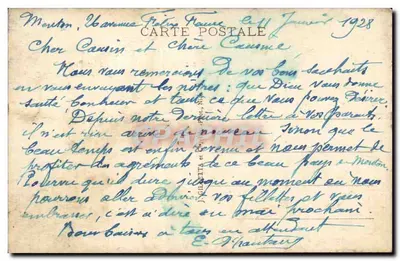 Menton, 2 Avenue Félix Faure le 11 Janvier 1928
CARTE POSTALE
Cher Cousin et chère Cousine
Nous vous remercions de vos bons souhaits
en vous envoyant les nôtres : que Dieu vous donne
santé bonheur et tout ce que vous pouvez désirer.
Depuis notre dernière lettre à vos parents
il n'est rien sinon que le
beau temps est enfin revenu et nous permet de
profiter des agréments de ce beau pays
Pourvu qu'il dure jusqu'au moment où nous
pourrons aller vos fillettes et vous
embrasser, c'est à dire en mai prochain.
Bons baisers à tous en attendant
E.